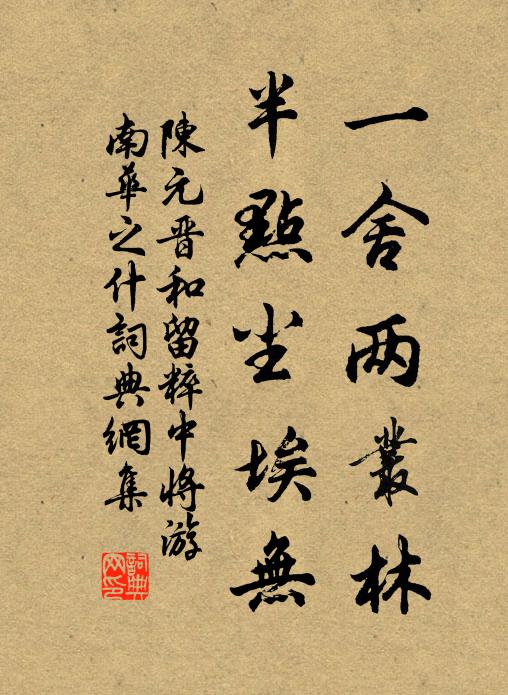 一舍两叢林
半點尘埃無
陳元晋和留粹中將游
南華之什詞典網集
詞典
网印